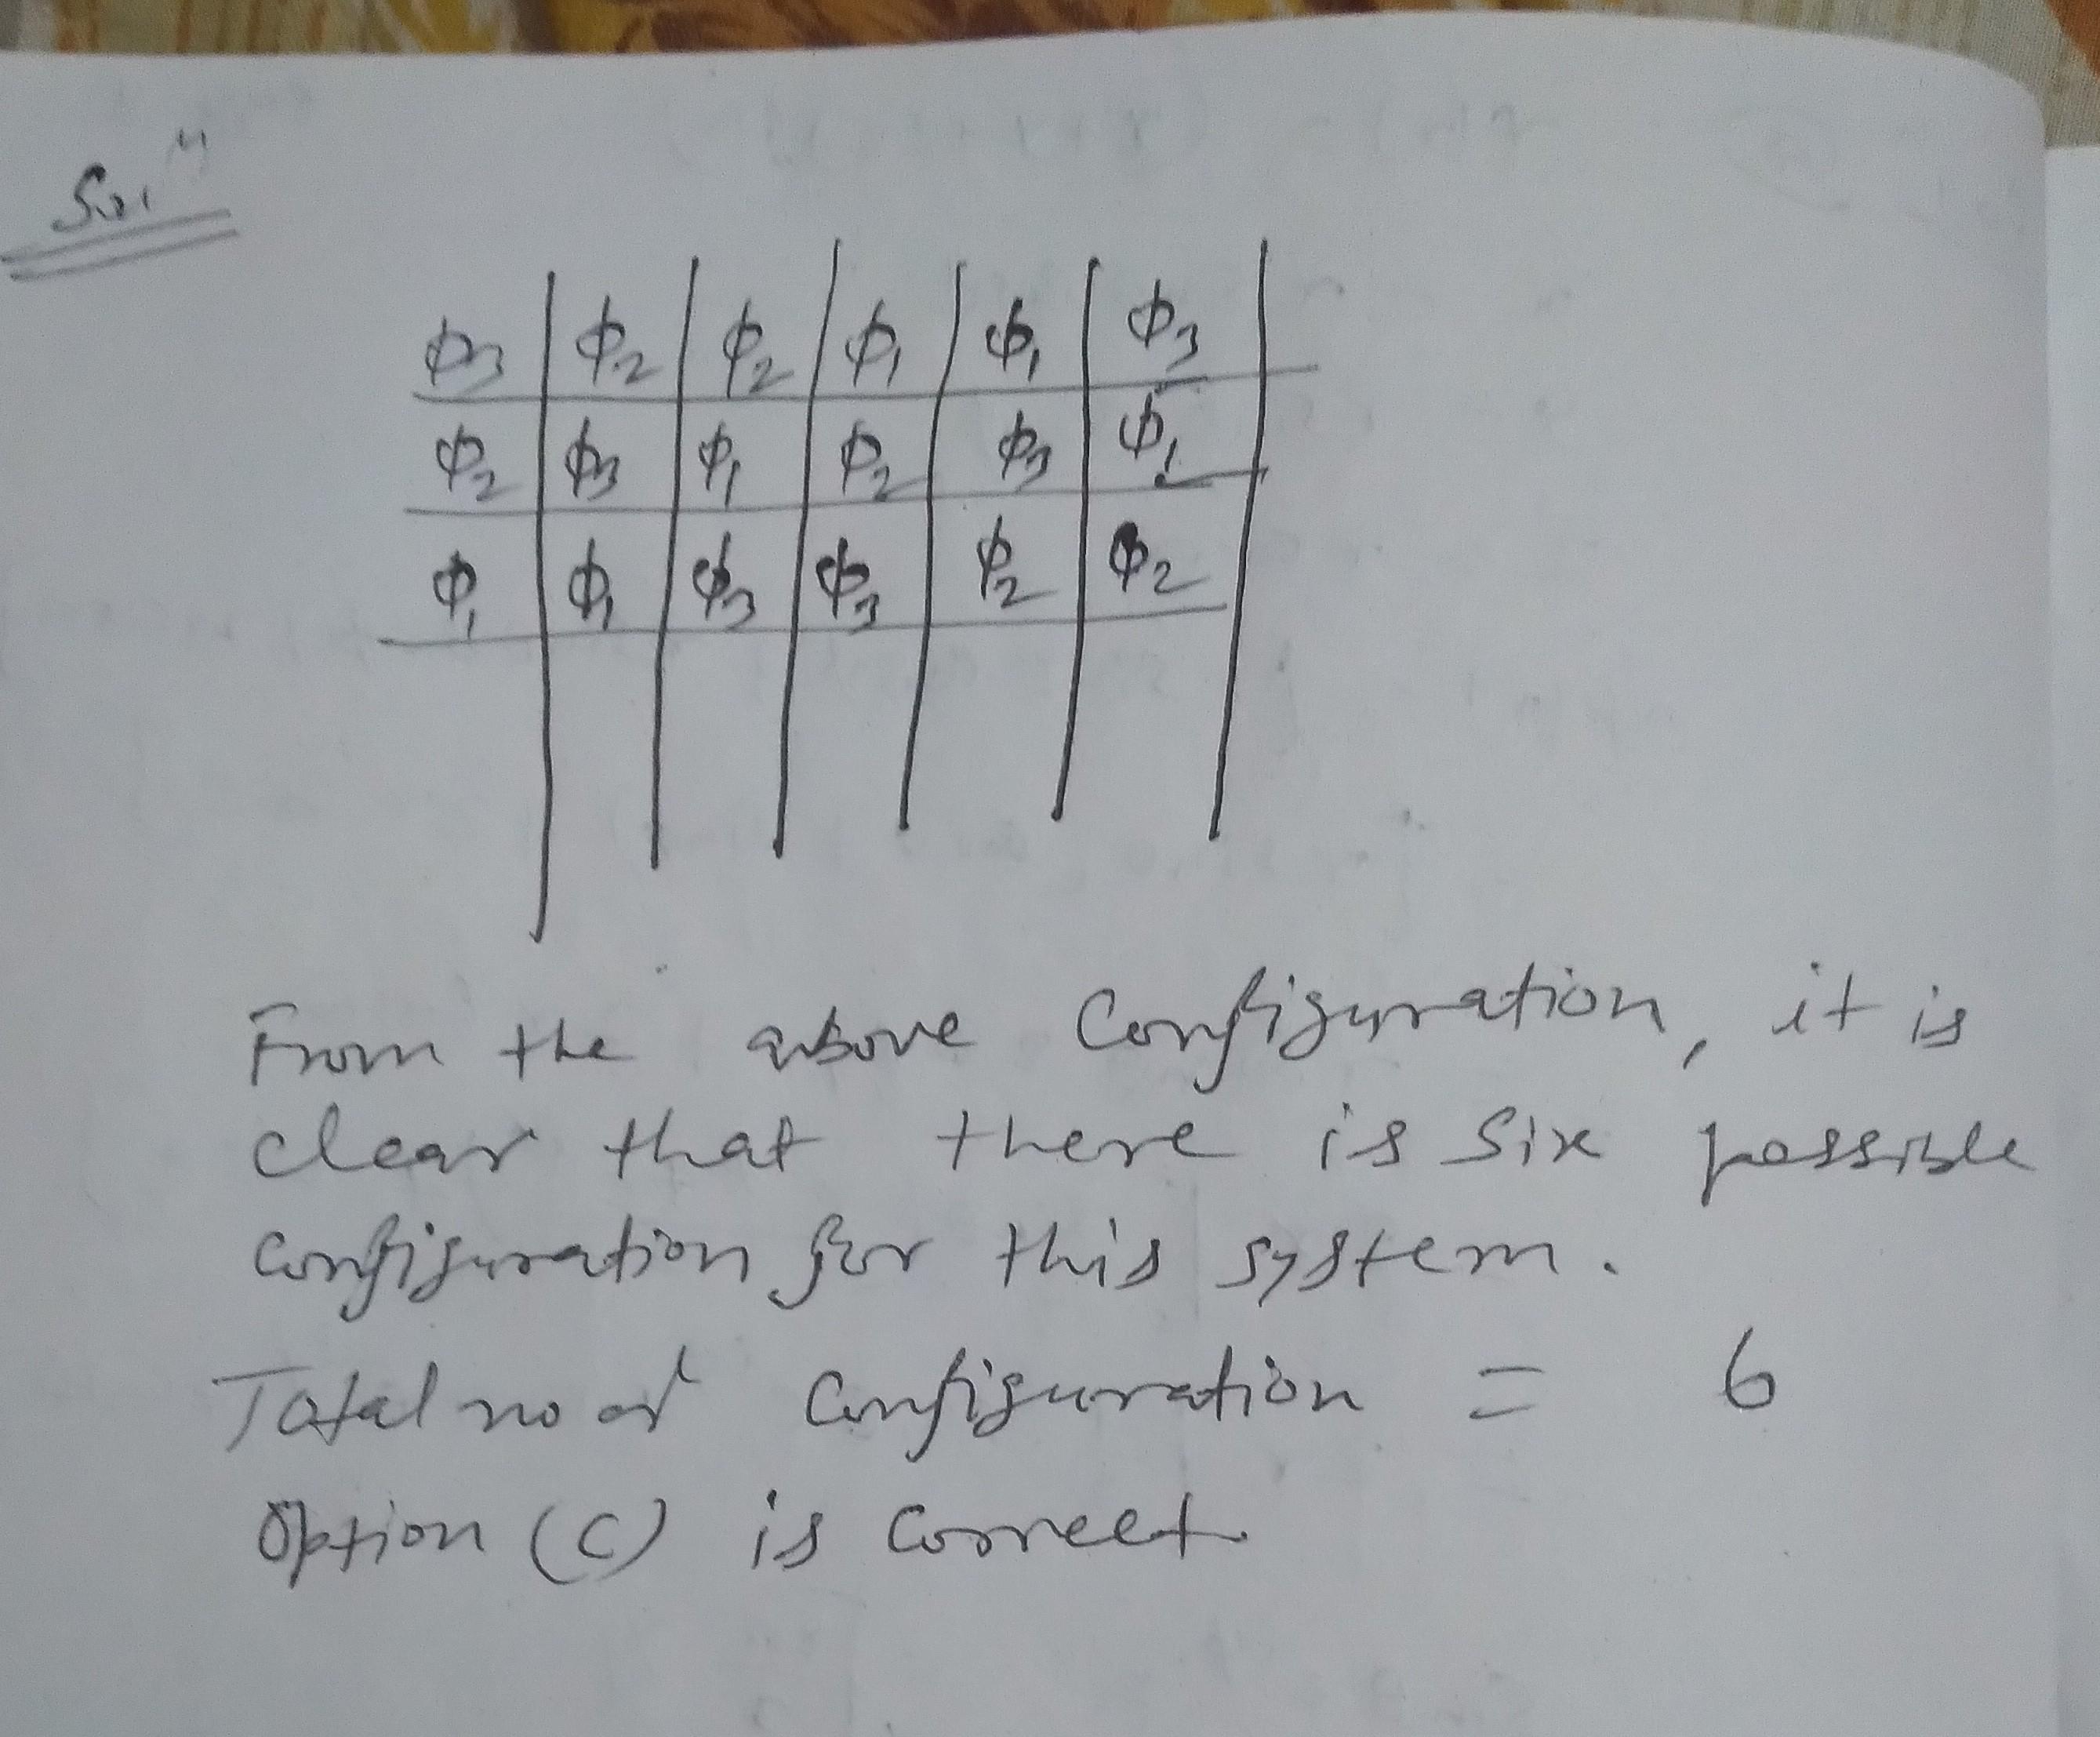 Solⁿ
ϕ3 | ϕ2 | ϕ2 | ϕ1 | ϕ1 | ϕ3
ϕ2 | ϕ3 | ϕ1 | ϕ2 | ϕ3 | ϕ1
ϕ1 | ϕ1 | ϕ3 | ϕ3 | ϕ2 | ϕ2
From the above Configuration, it is
clear that there is six possible
configuration for this system.
Total no of Configuration = 6
Option (C) is Correct